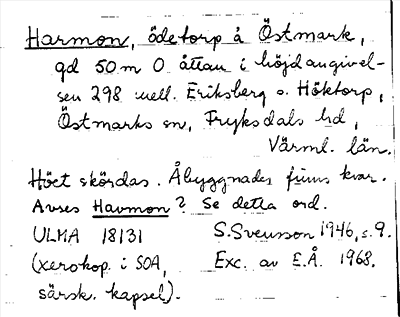 Harmon, ödetorp å Östmark,
gd 50 m O åttan i höjdangivel-
sen 298 mell. Eriksberg o. Höktorp,
Östmarks sn, Fryksdals hd,
Värml. län.
Höet skördas. Åbyggnader finns kvar.
Avses Havmon? Se detta ord.
ULMA 18131 S. Svensson 1946, s. 9.
(xerokop. i SOA, Exc. av E.Å. 1968.
särsk. kapsel).